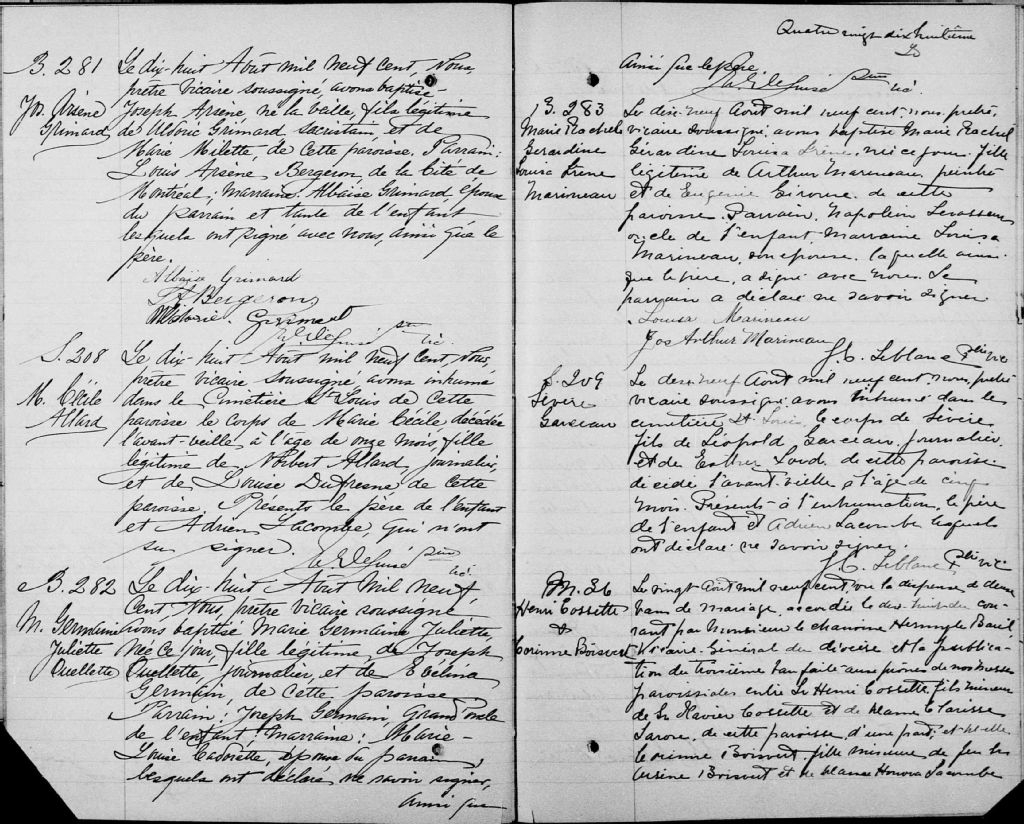 B. 281
Jh. Arsène
Grimard
Le dix-huit Août mil neuf cent, Nous,
prêtre vicaire soussigné, avons baptisé
Joseph Arsène, né la veille, fils légitime
de Aldoric Grimard sacristain, et de
Marie Milette, de cette paroisse. Parrain:
Louis Arsène Bergeron, de la Cité de
Montréal; marraine Albaïse Grimard, épouse
du parrain et tante de l'enfant
lesquels ont signé avec nous, ainsi que le
père.
Albaïse Grimard
Bergeron
Grimard
ptre
vic.
S. 208
M. Cécile
Allard
Le dix-huit Août mil neuf cent, Nous,
prêtre vicaire soussigné, avons inhumé
dans le Cimetière St Louis de cette
paroisse le corps de Marie Cécile, décédée
l'avant-veille à l'age de onze mois, fille
légitime de Norbert Allard, journalier,
et de Louise Dufresne de cette
paroisse. Présents le père de l'enfant
et Adrien Lacombe, qui n'ont
su signer.
ptre
vic
B. 282
M. Germaine
Juliette
Ouellette
Le dix-huit Août mil neuf
cent, Nous, prêtre vicaire soussigné
avons baptisé Marie Germaine Juliette,
née ce jour, fille légitime de Joseph
Ouellette, journalier, et de Evélina
Germain, de cette paroisse
Parrain: Joseph Germain, Grand'oncle
de l'enfant; Marraine: Marie-
Louise Cadorette, épouse du parrain,
lesquels ont déclaré ne savoir signer,
ainsi que
Quatre vingt dix huitième
Ainsi que le père
ptre
vic.
B. 283
Marie Rachel
Gérardine
Louisa Irène
Marineau
Le dix-neuf Août mil neuf cent, nous, prêtre
vicaire soussigné avons baptisé Marie Rachel
Gérardine Louisa Irène, née ce jour, fille
légitime de Arthur Marineau, peintre
et de Eugénie Girouse de cette
paroisse. Parrain, Napoléon Levasseur
oncle de l'enfant. Marraine Louisa
Marineau, son épouse, laquelle ainsi
que le père, a signé avec nous. Le
parrain a déclaré ne savoir signer
Louisa Marineau
Jos Arthur Marineau
Leblanc Ptre vic
S. 209
Sévère
Garceau
Le dix-neuf Août mil neuf cent, nous, prêtre
vicaire soussigné avons inhumé dans le
cimetière St Louis le corps de Sévère
fils de Léopold Garceau, journalier,
et de Esther Lord, de cette paroisse
décédé l'avant-veille à l'âge de cinq
mois. Présents à l'inhumation, le père
de l'enfant et Adrien Lacombe lesquels
ont déclaré ne savoir signer
Leblanc Ptre vic
M. 36
Henri Cossette
&
Corinne Boisvert
Le vingt Août mil neuf cent, vu la dispense de deux
bans de mariage, accordée le dix-huit du cou-
rant par Monsieur le chanoine Hermyle Baril
Vicaire Général du diocèse et la publica-
tion du troisième ban faite aux prônes de nos messes
paroissiales entre Sr Henri Cossette fils mineur
de Sr Xavier Cossette et de Dame Clarisse
de cette paroisse, d'une part; et Delle
Corinne Boisvert fille mineure de feu Sr
Boisvert et de Dame Honora Lacombe